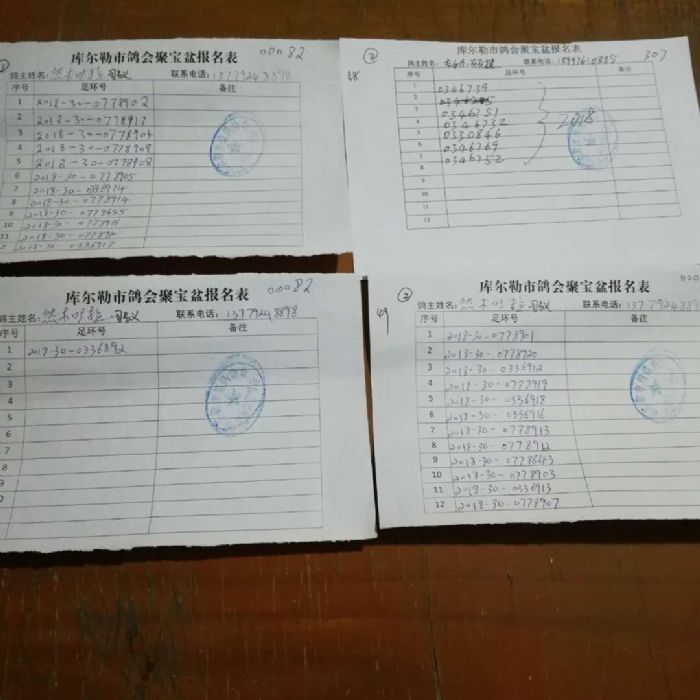 库尔勒市鸽会聚宝盆报名表 00082
鸽主姓名: 联系电话:
序号 足环号 备注
1 2018-30-0778902
2 2018-30-0778917
3 2018-30-0778904
4 2018-30-0778909
5 2018-30-0778908
6 2018-30-0778905
7 2018-30-0336914
8 2018-30-0778914
9 2018-30-0778655
10 2018-30-0778916
11 2018-30-
2018-30-0336917
② 库尔勒市鸽会聚宝盆报名表
48 鸽主姓名: 联系电话: 307
序号 足环号 备注
1 0346739
2
3 0346751
4 0346732
5 0330846
6 0346769
7 0346752
2018
8
9
10
11
12
库尔勒市鸽会聚宝盆报名表 00082
鸽主姓名: 联系电话: 13779248898
序号 足环号 备注
1 2017-30-0336892
2
3
4
5
6
7
8
9
库尔勒市鸽会聚宝盆报名表 000
49 ② 鸽主姓名: 联系电话:
序号 足环号 备注
1 2018-30-0778901
2 2018-30-0778920
3 2018-30-0336912
4 2018-30-0778919
5 2018-30-0336918
6 2018-30-0336916
7 2018-30-0778913
8 2018-30-0778912
9 2018-30-0778643
10 2018-30-0778903
11 2018-30-0336913
12 2018-30-0778907